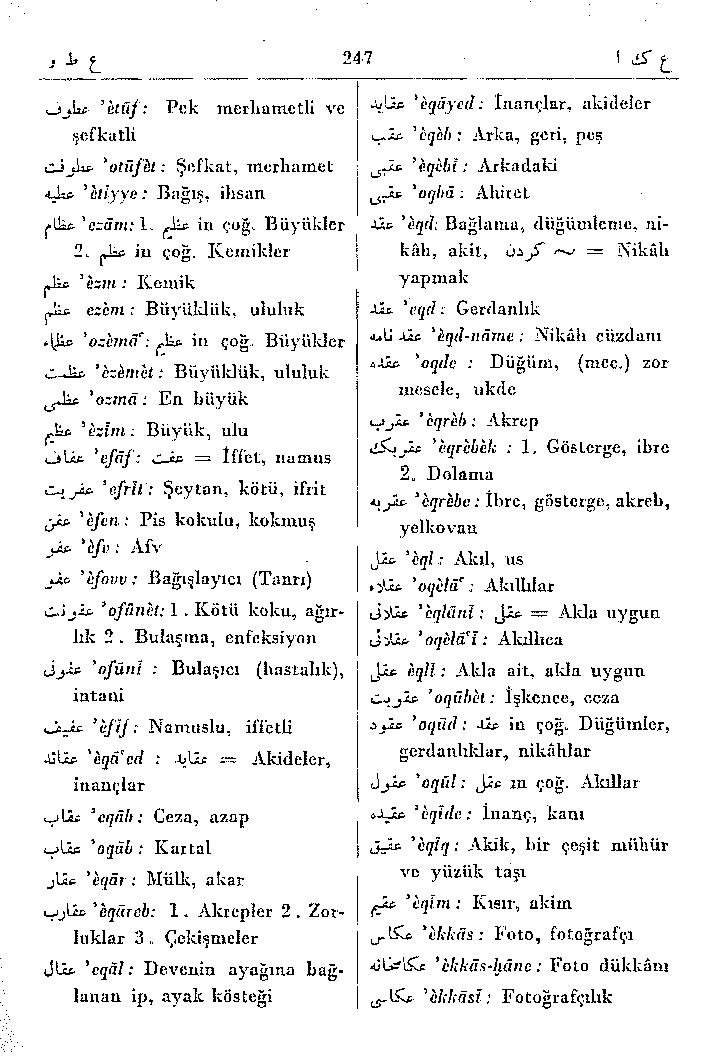 ع ط و
247
ع ک ا
عطوف ’ètūf: Pek merhametli ve
şefkatli
عطوفت ’otūfèt: Şefkat, merhamet
عطیه ’ètiyye: Bağış, ihsan
عظام ’ezām: 1. عظیم in çoğ. Büyükler
2. عظم in çoğ. Kemikler
عظم ’èzm: Kemik
عظم ezèm: Büyüklük, ululuk
عظماء ’ozèmāʿ: عظیم in çoğ. Büyükler
عظمت ’èzèmèt: Büyüklük, ululuk
عظمی ’ozmā: En büyük
عظیم ’èzīm: Büyük, ulu
عفاف ’efāf: عفت = İffet, namus
عفریت ’efrīt: Şeytan, kötü, ifrit
عفن ’èfen: Pis kokulu, kokmuş
عفو ’èfv: Afv
عفو ’èfovv: Bağışlayıcı (Tanrı)
عفونت ’ofūnèt: 1. Kötü koku, ağır-
lık 2. Bulaşma, enfeksiyon
عفونی ’ofūnī: Bulaşıcı (hastalık),
intani
عفیف ’èfīf: Namuslu, iffetli
عقائد ’èqāʿed: عقاید = Akideler,
inançlar
عقاب ’eqāb: Ceza, azap
عقاب ’oqāb: Kartal
عقار ’èqār: Mülk, akar
عقارب ’èqāreb: 1. Akrepler 2. Zor-
luklar 3. Çekişmeler
عقال ’eqāl: Devenin ayağına bağ-
lanan ip, ayak kösteği
عقاید ’èqāyed: İnançlar, akideler
عقب ’èqèb: Arka, geri, peş
عقبی ’èqèbī: Arkadaki
عقبی ’oqbā: Ahiret
عقد ’èqd: Bağlama, düğümleme, ni-
kâh, akit, ~ کردن = Nikâh
yapmak
عقد ’eqd: Gerdanlık
عقد نامه ’èqd-nāme: Nikâh cüzdanı
عقده ’oqde: Düğüm, (mec.) zor
mesele, ukde
عقرب ’èqrèb: Akrep
عقربک ’èqrèbèk: 1. Gösterge, ibre
2. Dolama
عقربه ’èqrèbe: İbre, gösterge, akreb,
yelkovan
عقل ’èql: Akıl, us
عقلاء ’oqèlāʿ: Akıllılar
عقلانی ’èqlānī: عقلی = Akla uygun
عقلائی ’oqèlāʿī: Akıllıca
عقلی èqlī: Akla ait, akla uygun
عقوبت ’oqūbèt: İşkence, ceza
عقود ’oqūd: عقد in çoğ. Düğümler,
gerdanlıklar, nikâhlar
عقول ’oqūl: عقل ın çoğ. Akıllar
عقیده ’èqīde: İnanç, kanı
عقیق ’èqīq: Akik, bir çeşit mühür
ve yüzük taşı
عقیم ’èqīm: Kısır, akim
عکاس ’èkkās: Foto, fotoğrafçı
عکاسخانه ’èkkās-ḫāne: Foto dükkânı
عکاسی ’èkkāsī: Fotoğrafçılık